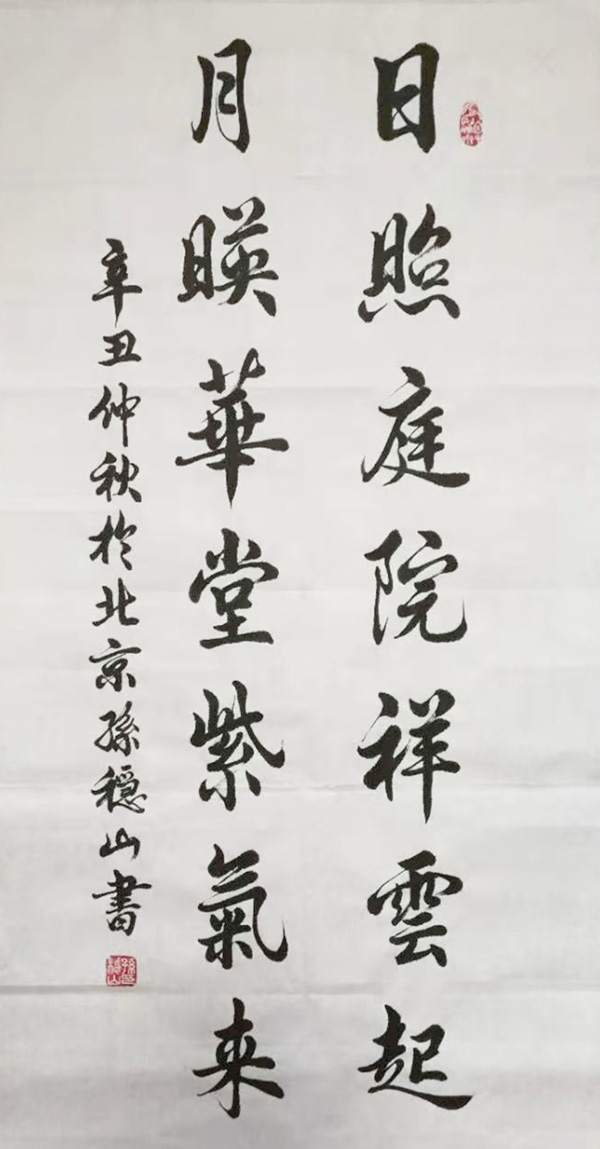 日照庭院祥雲起
月暎華堂紫氣来
辛丑仲秋於北京孫穩山書